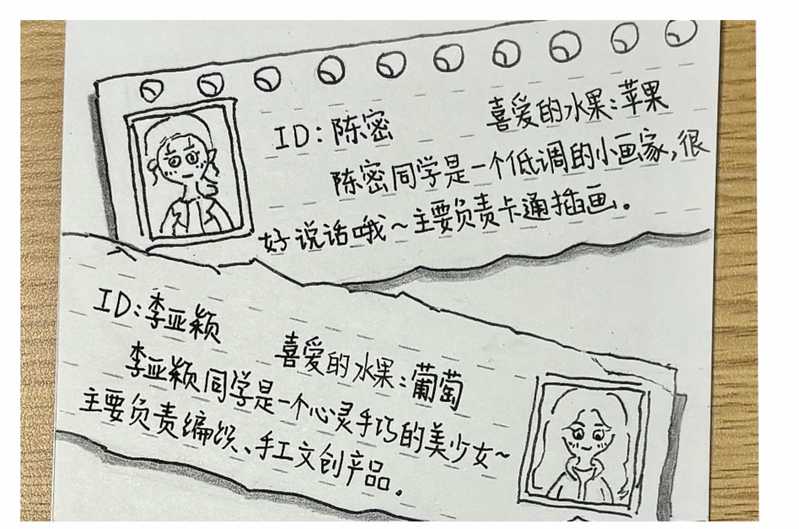 ID:陈密 喜爱的水果:苹果
陈密同学是一个低调的小画家,很
好说话哦~主要负责卡通插画。
ID:李亚颖 喜爱的水果:葡萄
李亚颖同学是一个心灵手巧的美少女~
主要负责编织、手工文创产品。